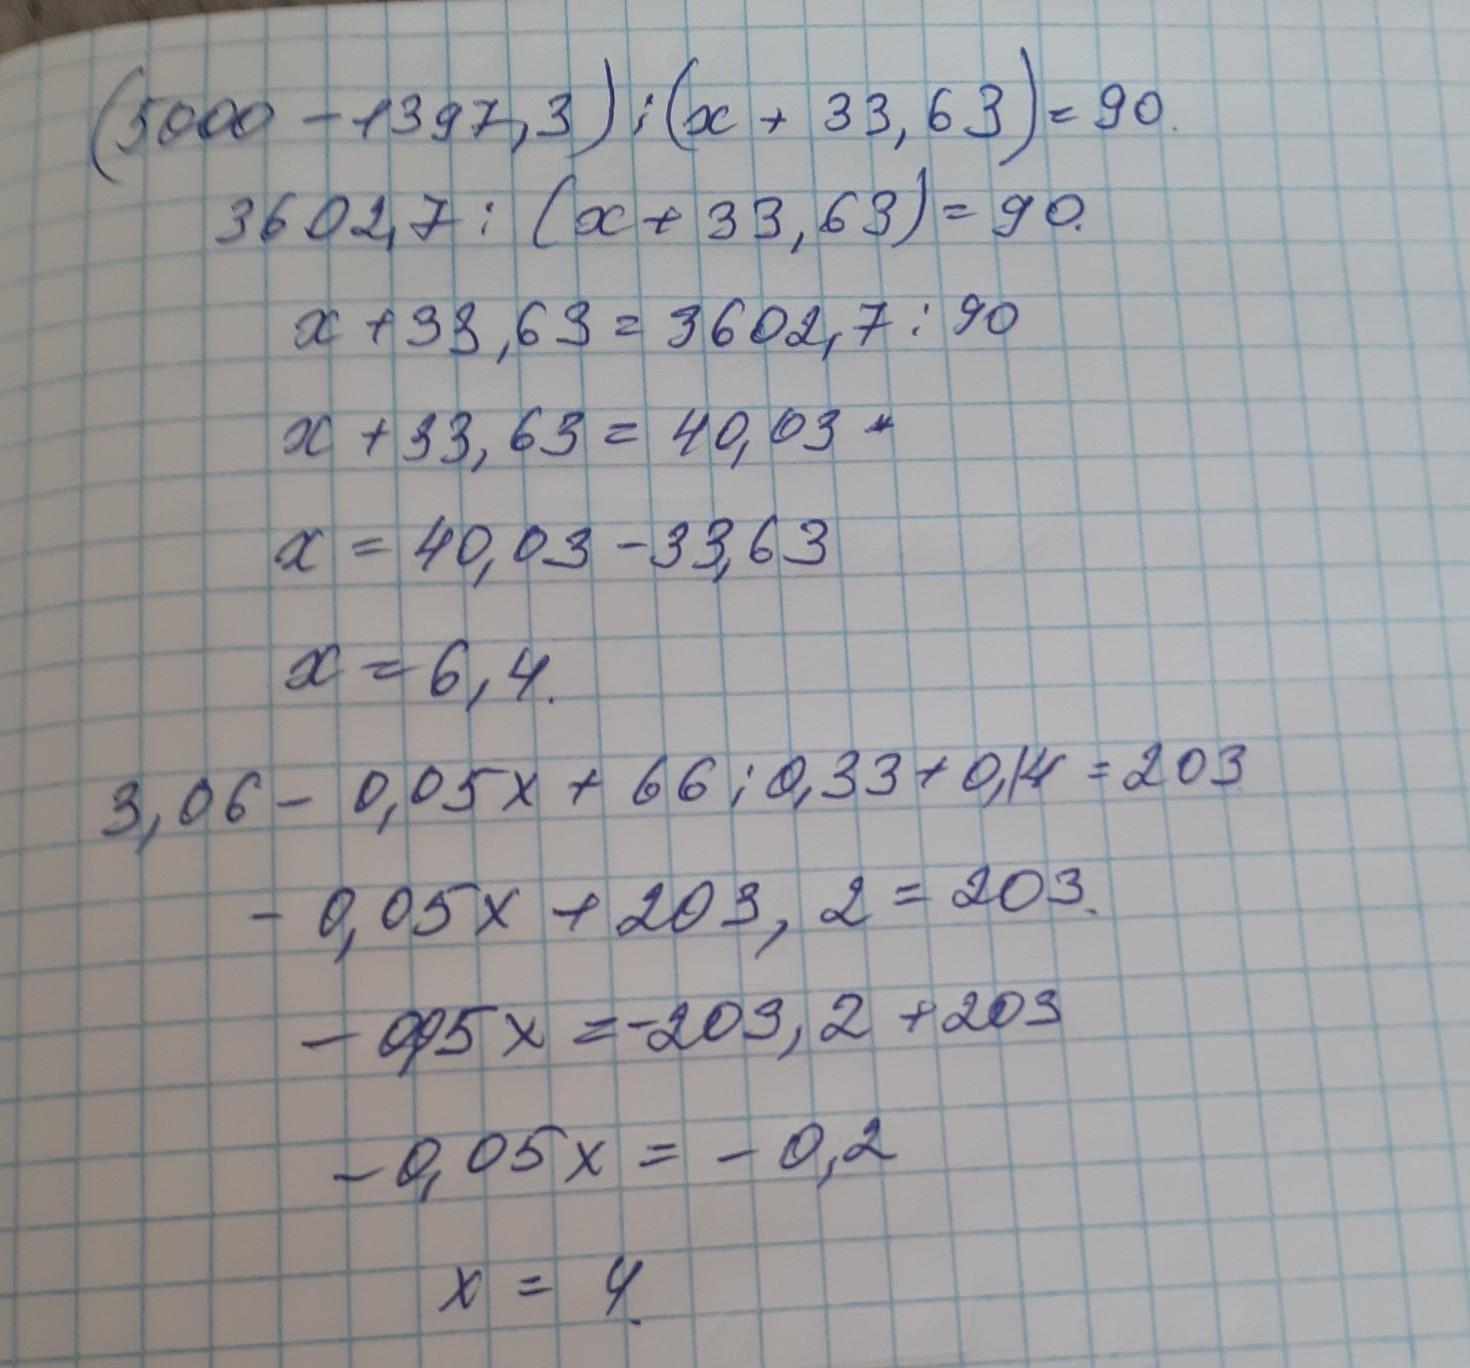 (5000 - 1397,3) : (x + 33,63) = 90.
3602,7 : (x + 33,63) = 90.
x + 33,63 = 3602,7 : 90
x + 33,63 = 40,03
x = 40,03 - 33,63
x = 6,4.
3,06 - 0,05x + 66 : 0,33 + 0,14 = 203
- 0,05x + 203,2 = 203.
- 0,05x = -203,2 + 203
- 0,05x = - 0,2
x = 4.